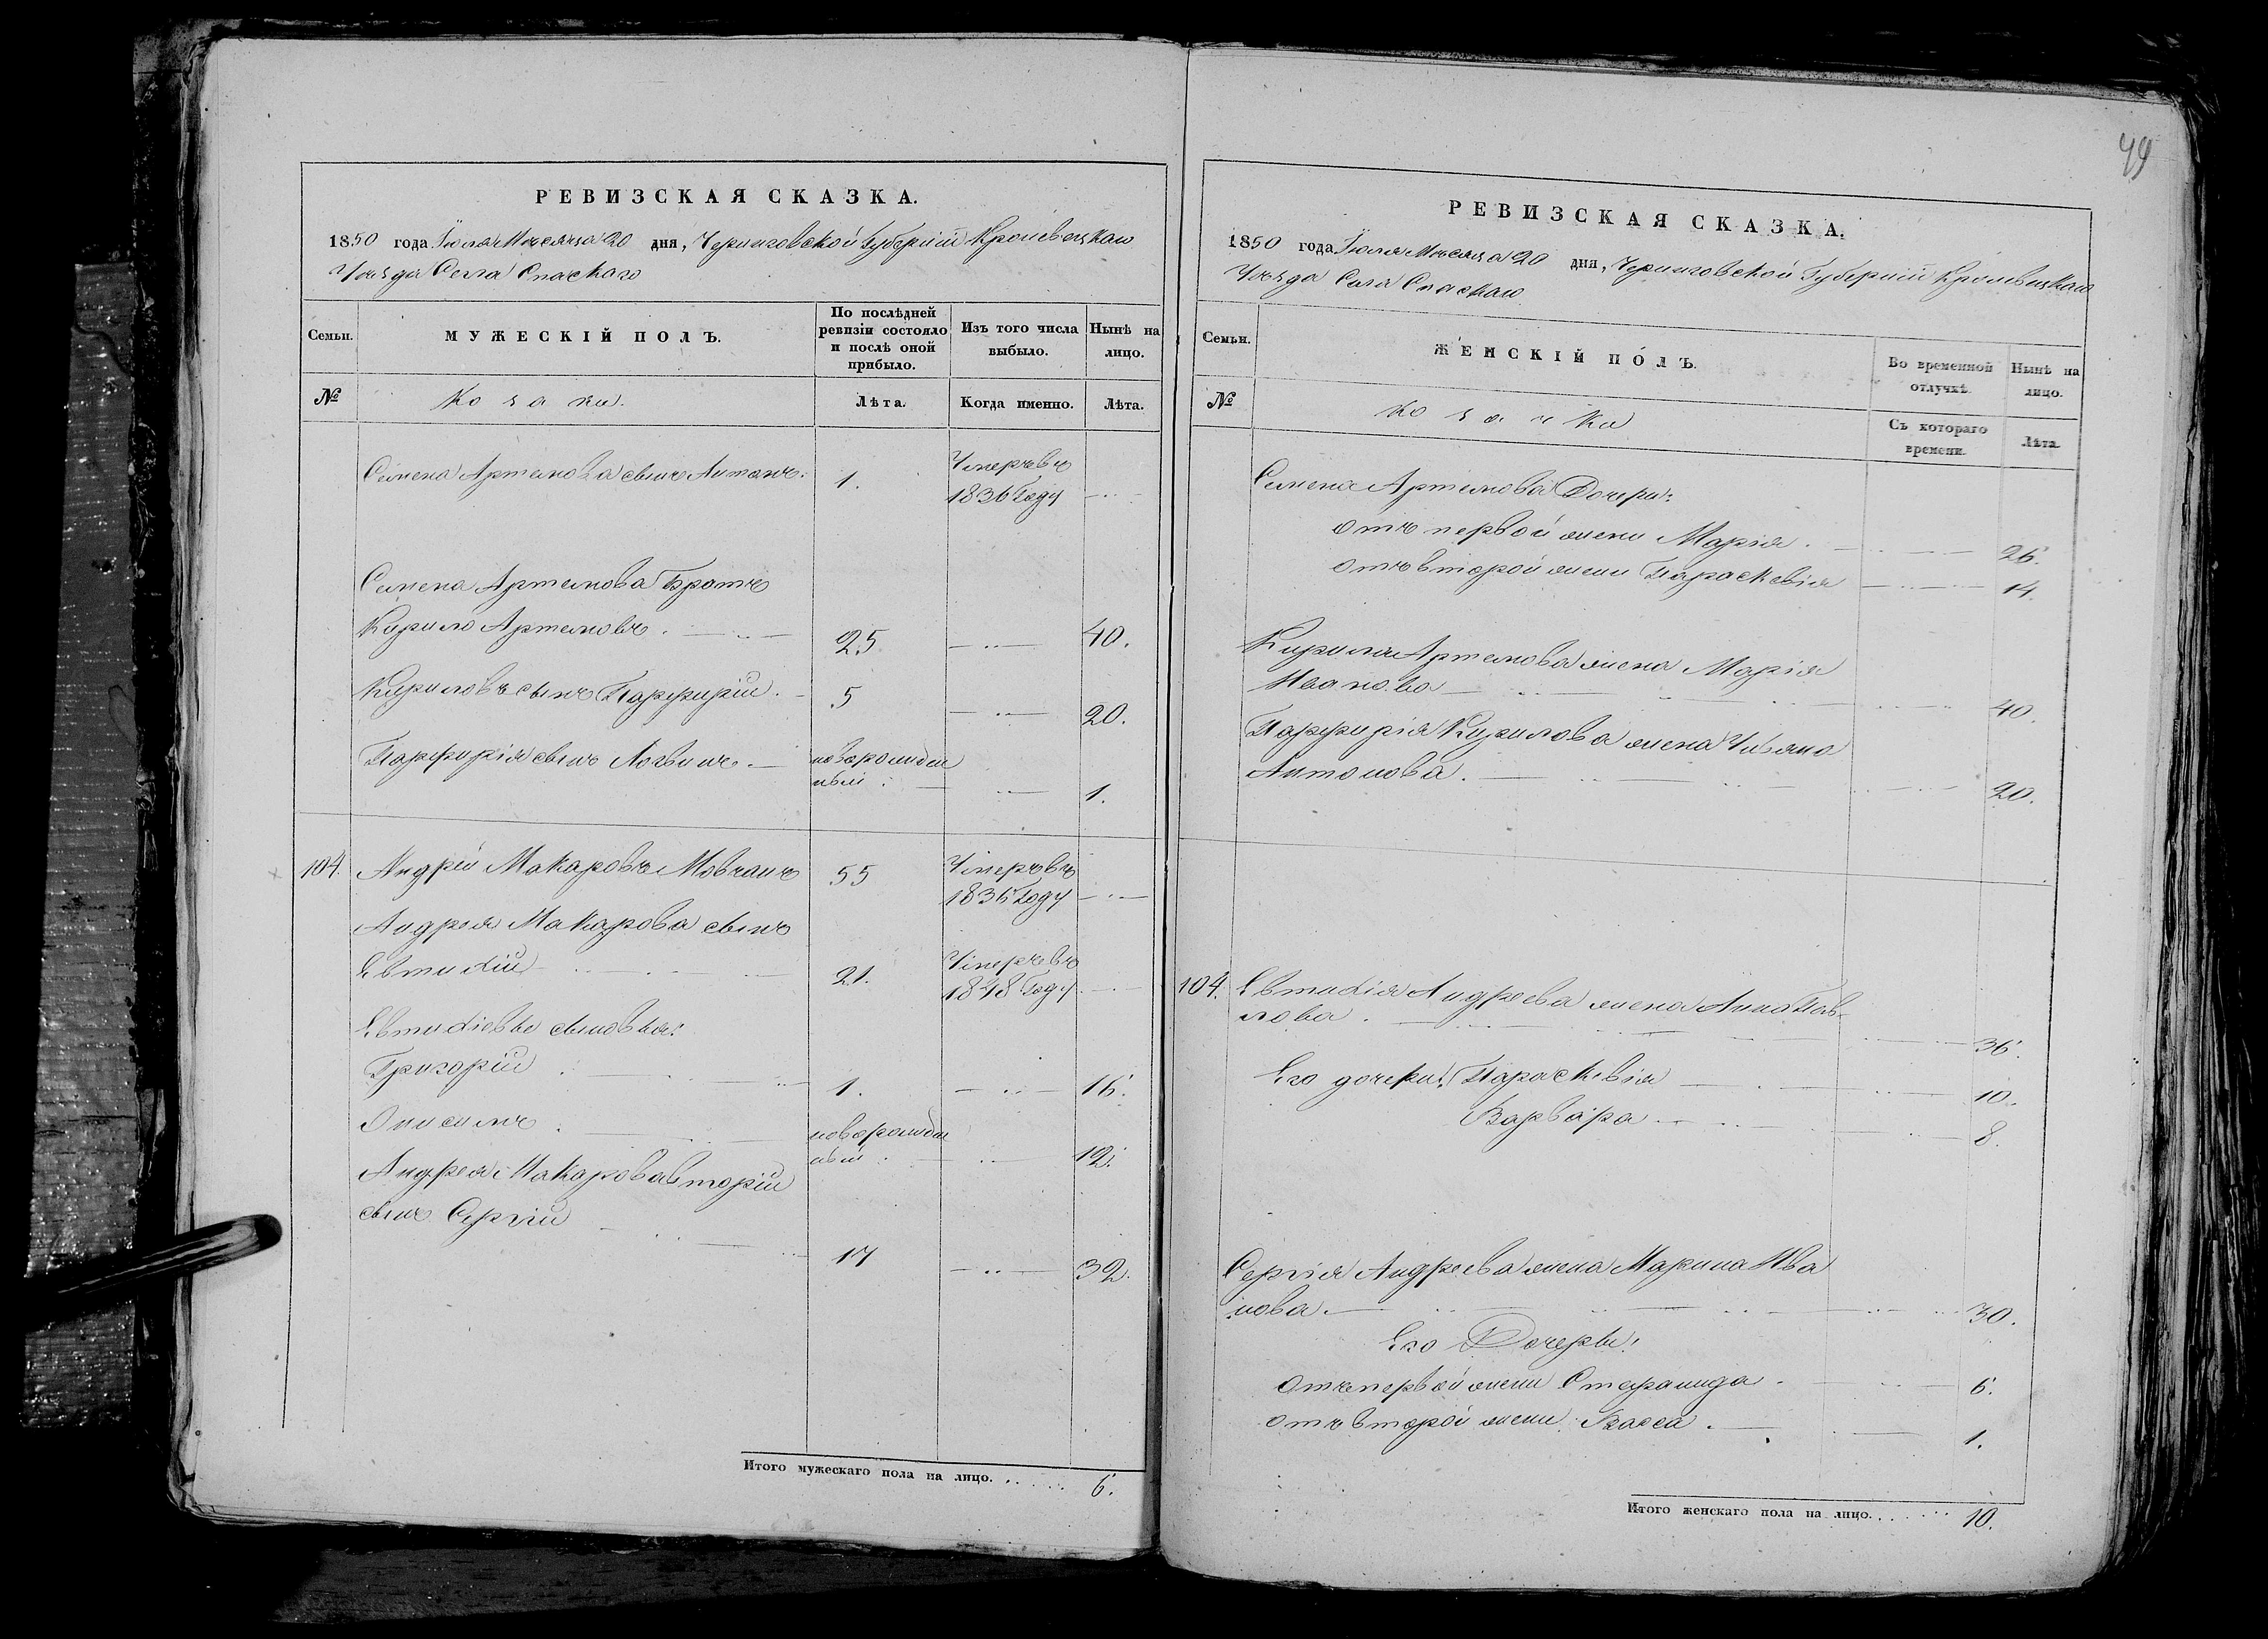 РЕВИЗСКАЯ СКАЗКА.
1850 года Іюля Мѣсяца 20 дня, Черниговской Губерніи Кролевецкаго
Уѣзда Села Спаскаго
Семьи. МУЖЕСКІЙ ПОЛЪ. По послѣдней ревизіи состояло и послѣ оной прибыло. Изъ того числа выбыло. Нынѣ на лицо.
№ Козаки. Лѣта. Когда именно. Лѣта.
Семена Артемова сынъ Антонъ. 1. Умеръ въ 1836 Году
Семена Артемова Братъ
Кирило Артемовъ. 25 40.
Кириловъ сынъ Парфирій. 5 20.
Парфирія сынъ Логвинъ. новорожден
ный 1.
104. Андрей Макаровъ Мовчанъ 55 Умеръ въ 1836 Году
Андрея Макарова сынъ
Евтихій 21. Умеръ въ 1848 Году
Евтихіевы сыновья:
Григорій 1. 16.
Онисимъ новорожден
ный 12.
Андрея Макарова вторій
сынъ Сергій 17 32.
Итого мужескаго пола на лицо. 6.
49
РЕВИЗСКАЯ СКАЗКА.
1850 года Іюля Мѣсяца 20 дня, Черниговской Губерніи Кролевецкаго
Уѣзда Села Спаскаго
Семьи. ЖЕНСКІЙ ПОЛЪ. Во временной отлучкѣ. Нынѣ на лицо.
№ Козачки Съ котораго времени. Лѣта.
Семена Артемова Дочери:
отъ первой жени Марія. 26.
отъ второй жени Параскевія 14.
Кирила Артемова жена Марія
Иванова 40.
Парфирія Кирилова жена Уліяна
Антонова. 20.
104. Евтихія Андреева жена Анна Пав-
лова. 36.
Его дочери: Параскевія 10.
Варвара 8.
Сергія Андреева жена Марина Ива
нова. 30.
Его Дочеры:
отъ первой жени Стефанида. 6.
отъ второй жени Васса. 1.
Итого женскаго пола на лицо. 10.